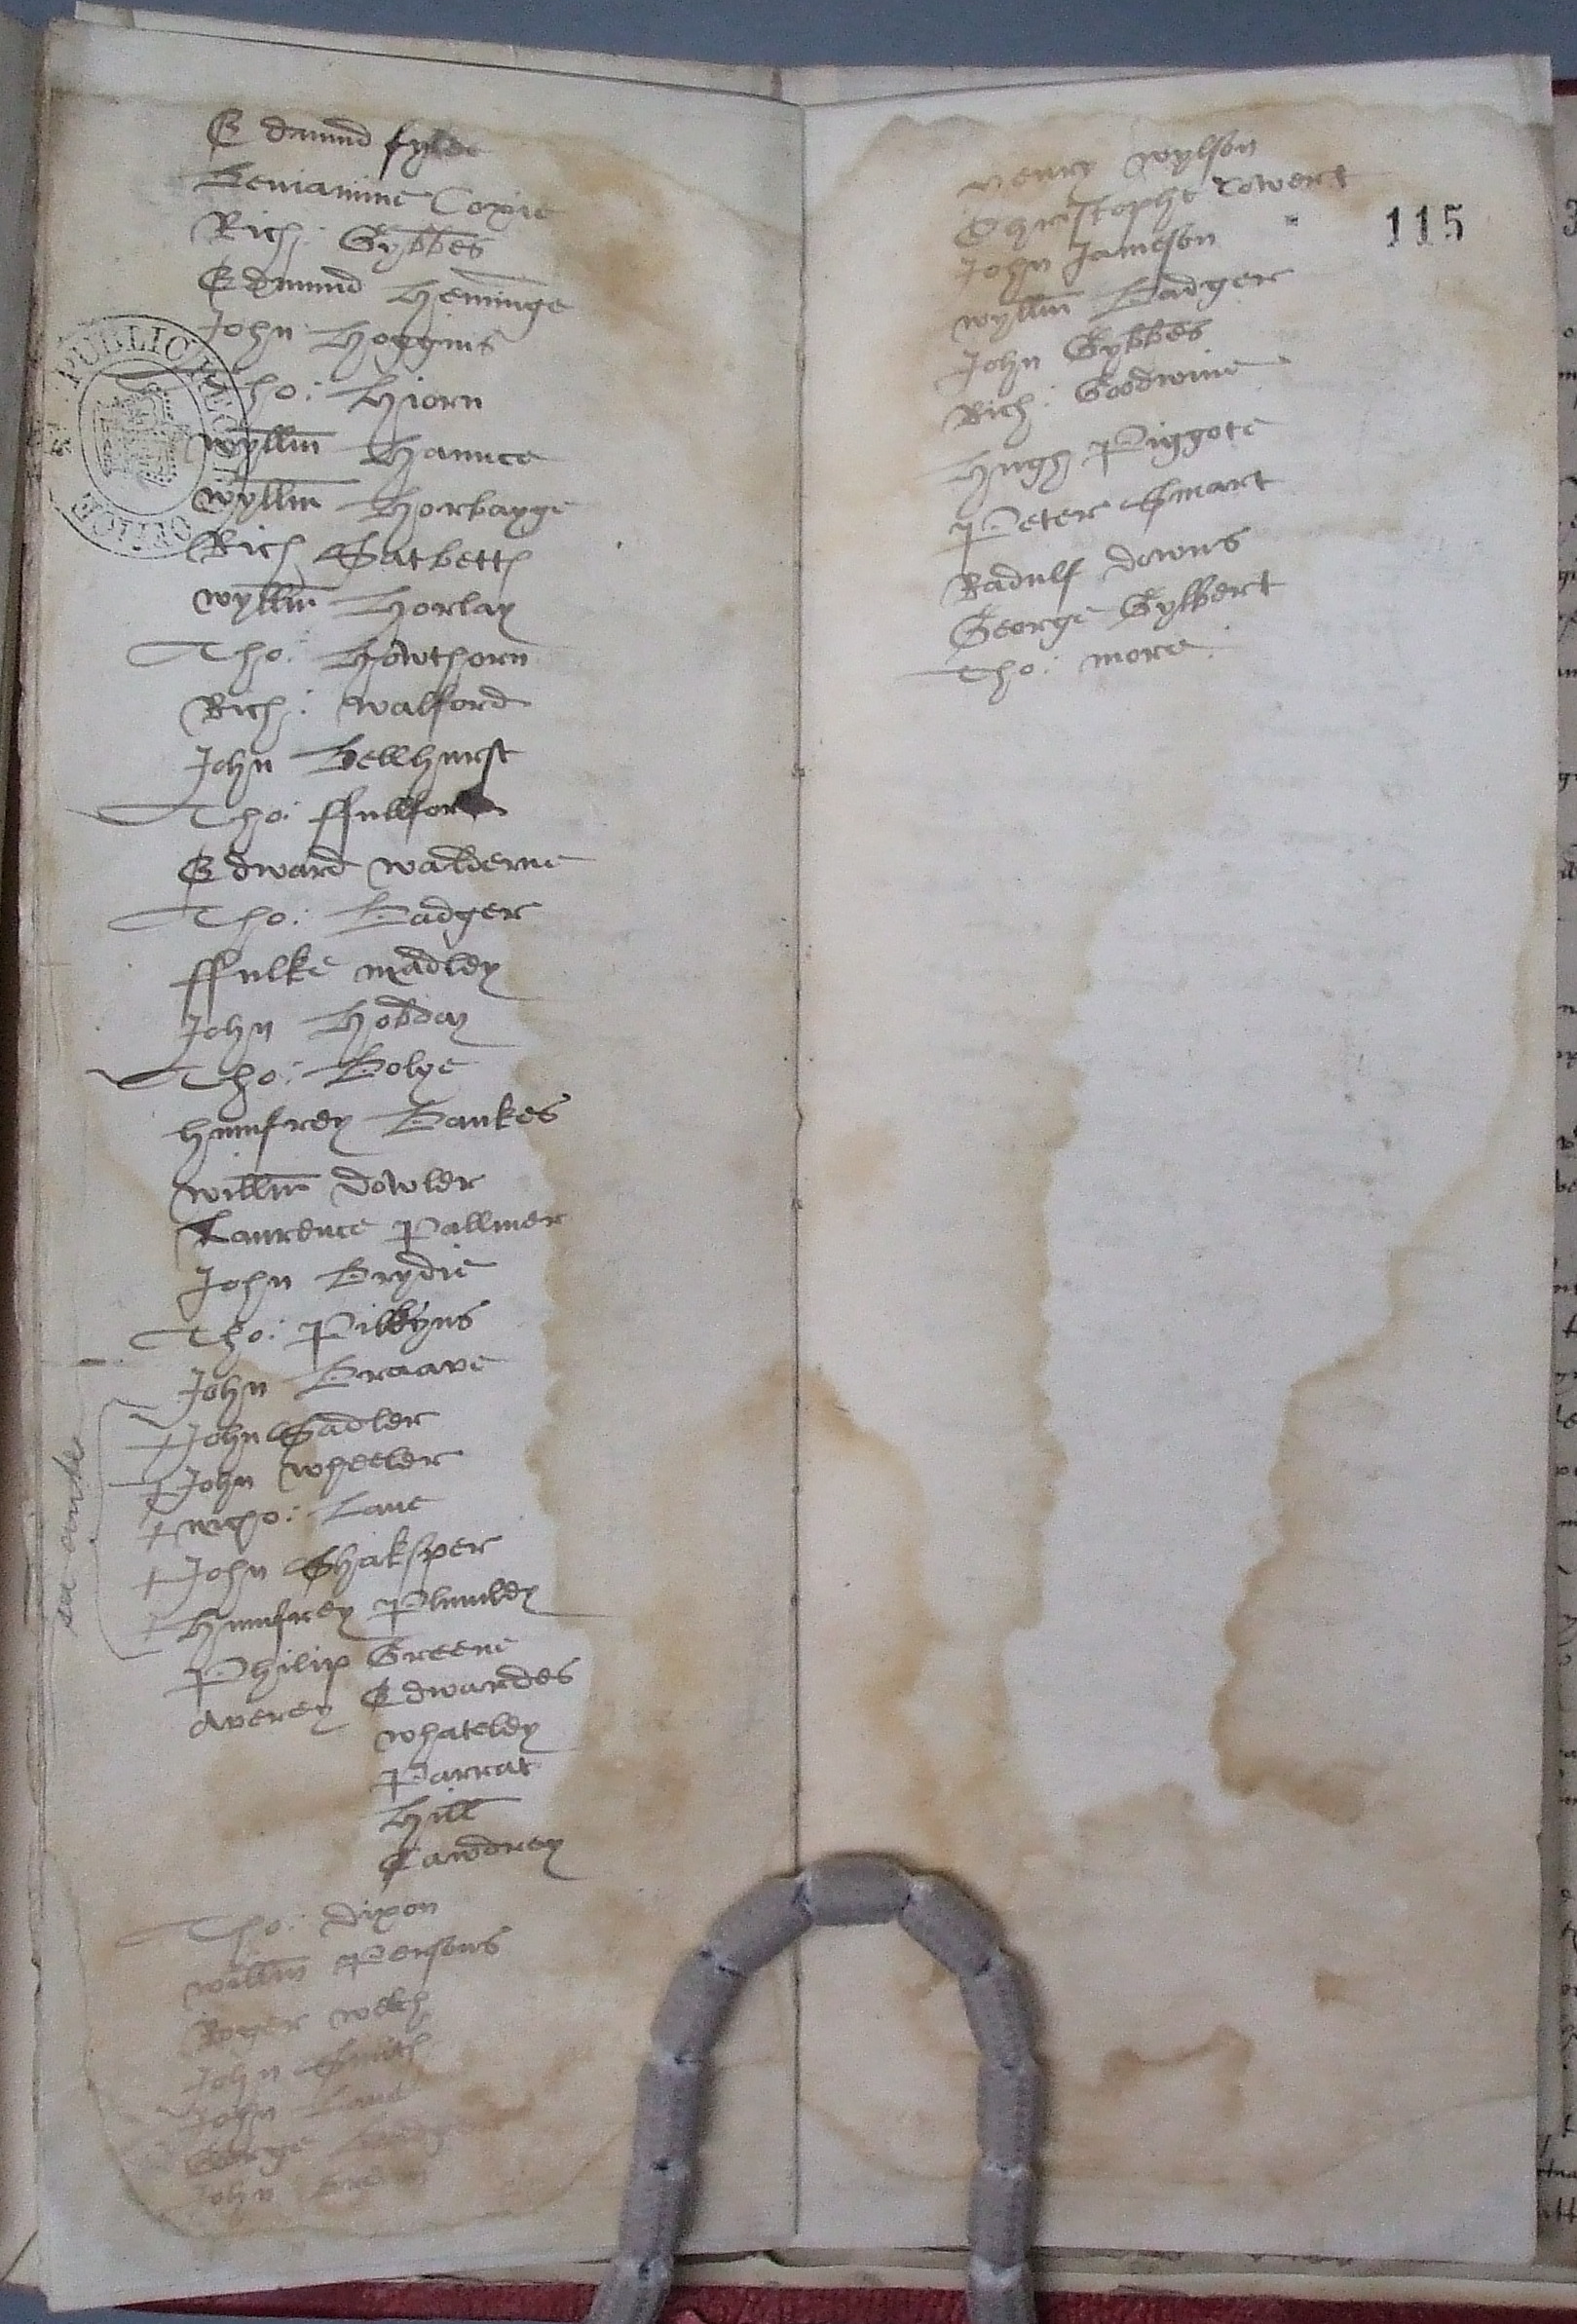 Edmund fylde
Beniamine Coxie
Rich: Gybbes
Edmund Heminge
John Hoggins
Tho: Hiorn
Wyllm Haince
Wyllm Horbayge
Rich Satbetth
Wyllm Horlay
Tho: Hawthorn
Rich: Walford
John Bellhurst
Tho: ffullford
Edward Walderne
Tho: Badger
ffulke Madley
John Hobday
Tho: Bolye
Humfrey Bankes
Willm Dowler
Laurence Pallmer
John Brydie
Tho: Pilkyns
John Braave
John Sadler
John Wheeler
nicho: Lane
John Shaksper
Humfrey Plumley
Philip Greene
Averey Edwardes
Whateley
Parrat
Hill
Cawdrey
Tho: Dixon
Willm Persons
Roger Welch
John Smith
John Lane
George Badger
John
PUBLIC RECORD OFFICE
Henry Wylson
Christophr Cowert
115
John Jameson
Wyllm Badger
John Gybbes
Rich: Goodwine
Hugh Piggote
Peter Smart
Radulf Downs
George Gylbert
Tho: more